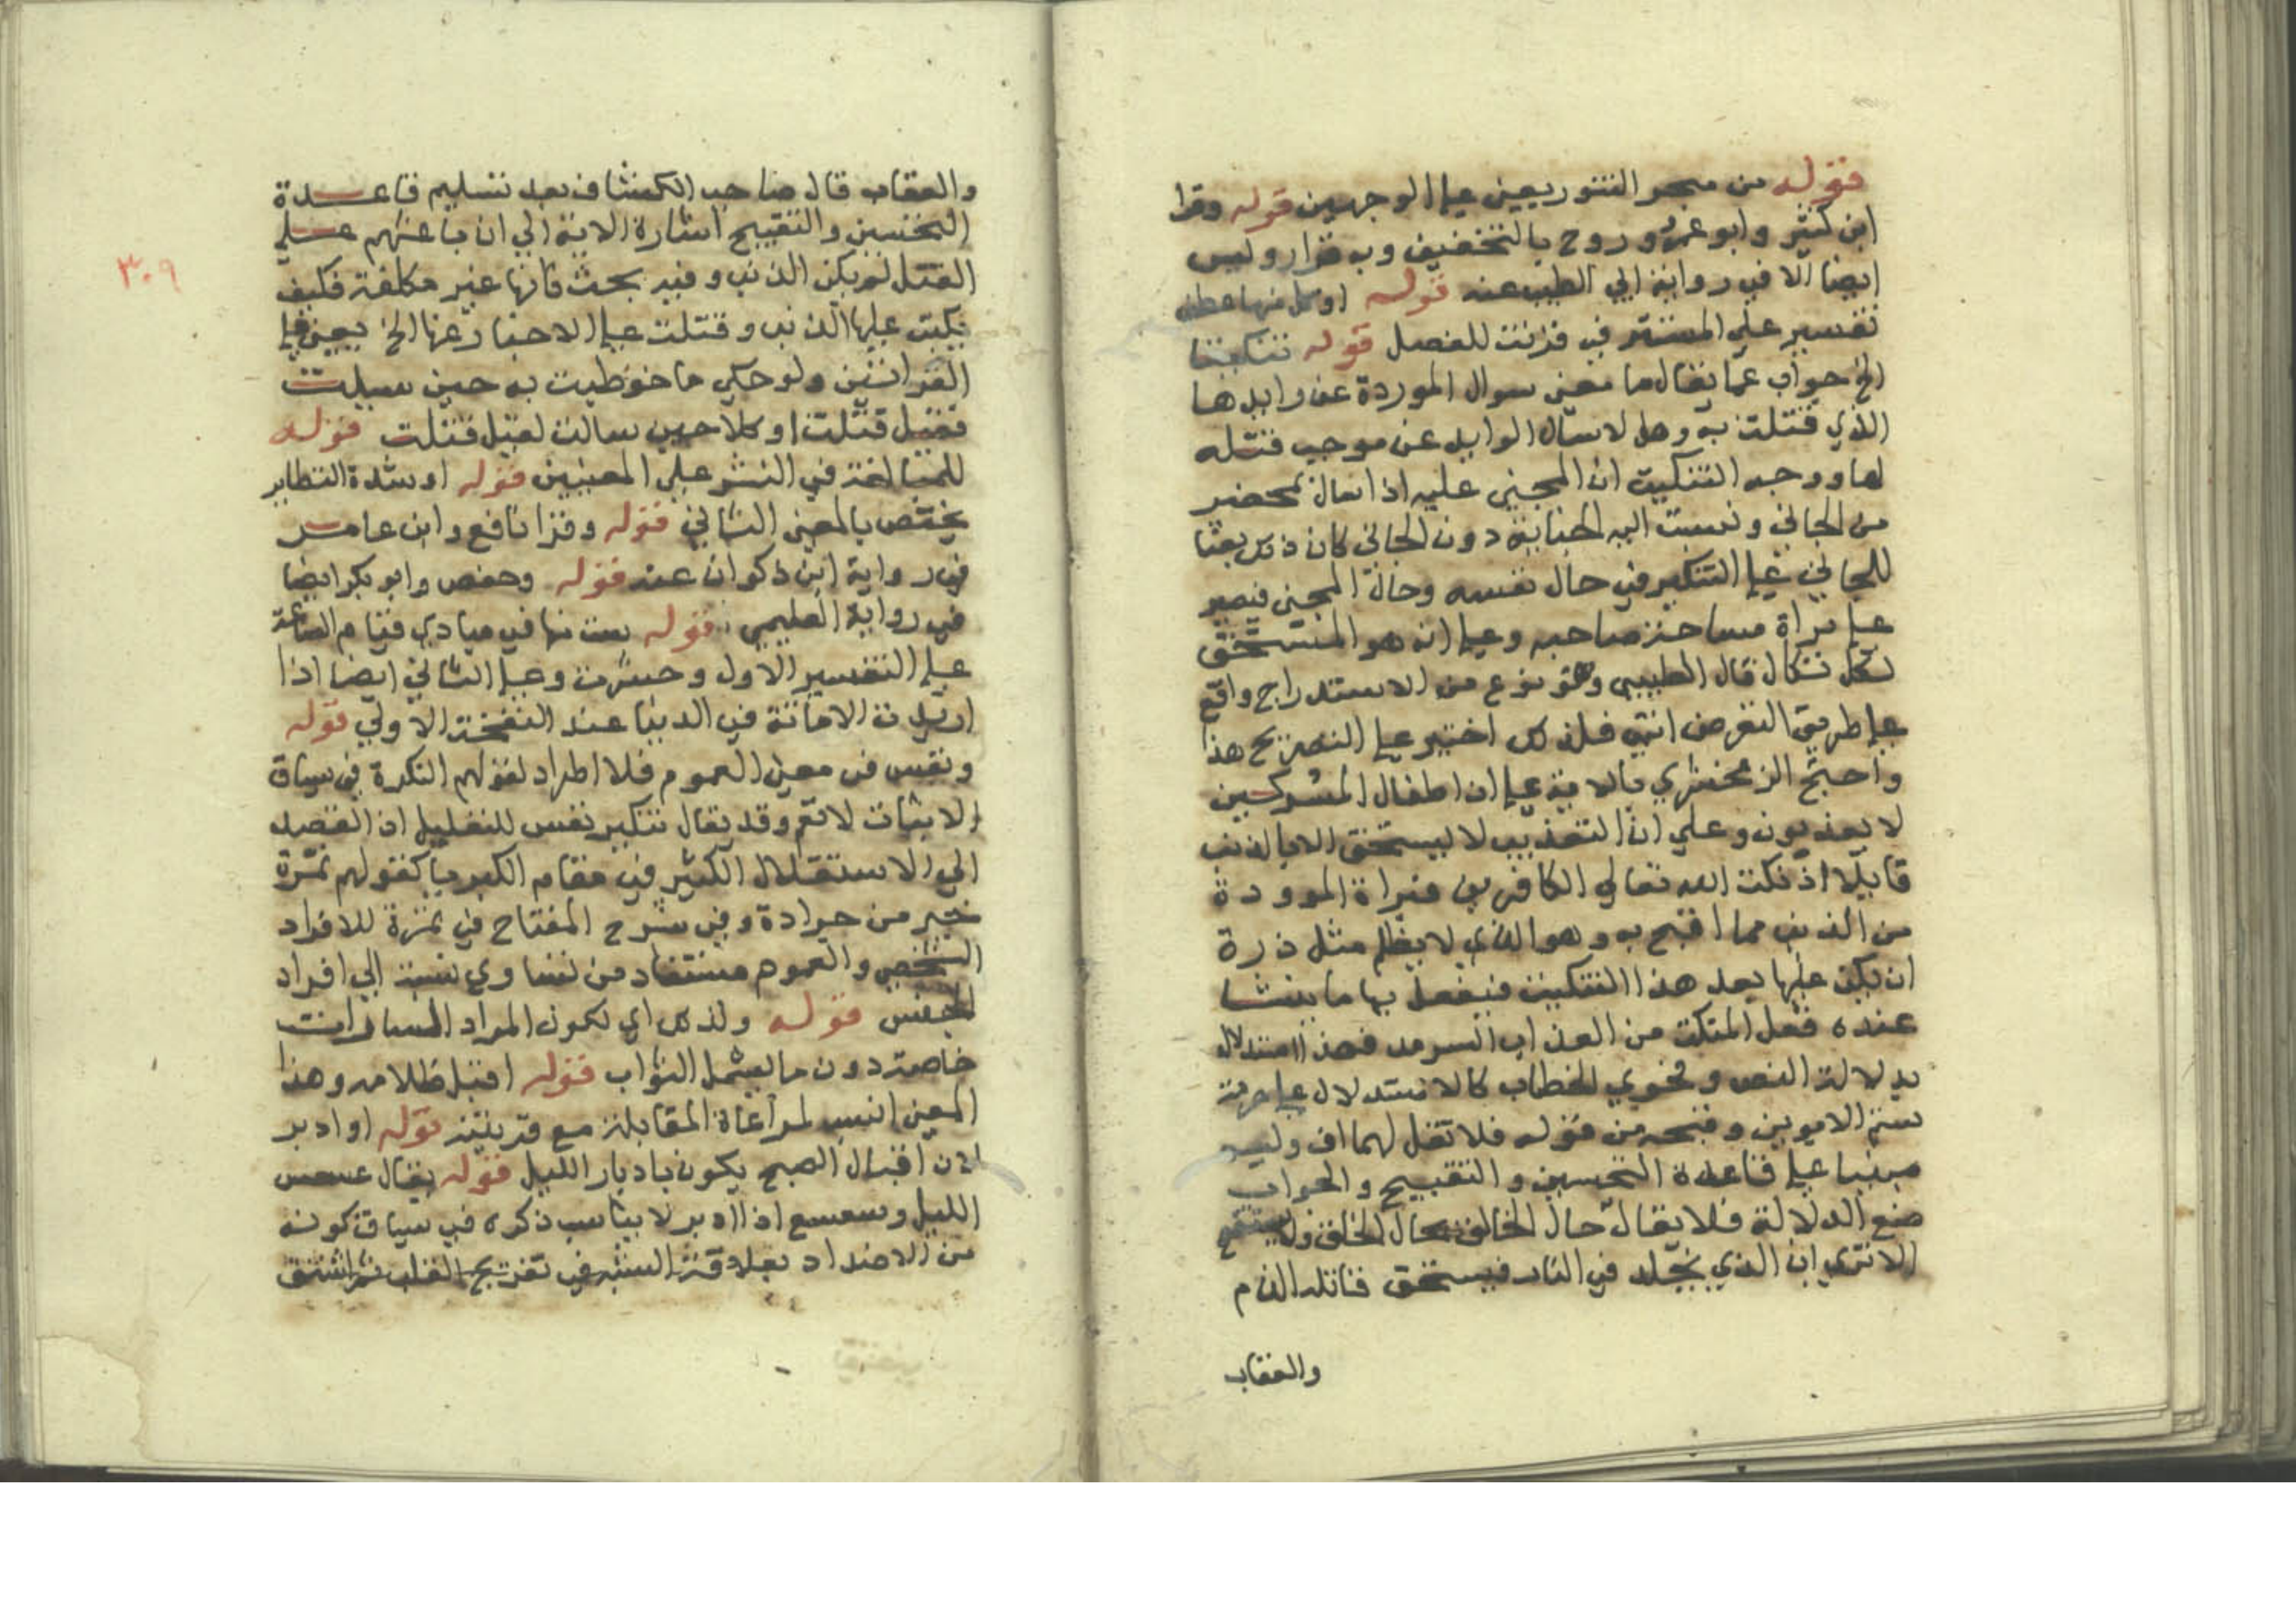 قوله من سجر التنور يعني على الوجهين قوله وقرا
ابن كثير وابو عمرو وروح بالتخفيف وب قرا رويس
ايضا الا في رواية ابي الطيب عنه قوله او كل منها عطف
تفسير على المستتر في قرنت للفصل قوله تبكيتا
الخ جواب عما يقال ما معنى سوال الموردة عن وايدها
الذي قتلت به وهل لا سئال الوايد عن موجب قتله
لها ووجه التبكيت ان المجني عليه اذا سال بمحضر
من الجاني ونسبت اليه الجناية دون الجاني كان ذلك بعثا
للجاني على التفكير في حال نفسه وحال المجني فيصير
على براة ساحة صاحبه وعلى انه هو المستحق
لكل نكال قال الطيبي وهو نوع من الاستدراج واقع
على طريق التعريض انتهى فلذلك اختير على التصريح هذا
واحتج الزمخشري بالاية على ان اطفال المشركين
لا يعذبون وعلى ان التعذيب لا يستحق الا بالذنب
قايلا اذ بكت الله تعالى الكافر ببراة الموودة
من الذنب فما اقبح به وهو الذي لا يظلم مثل ذرة
ان يكر عليها بعد هذا التبكيت فيفعل بها ما ينشا
عنده فعل المبكت من العذاب السرمد فهذا استدلال
بدلالة النص وفحوي الخطاب كالاستدلال على حرمة
شتم الابوين وقبحه من قوله فلا تقل لهما اف وليس
مبنيا على قاعدة التحسين والتقبيح والجواب
منع الدلالة فلا يقال حال الخالق بحال الخلق ولا يستقبح
الا ترى ان الذي يخلد في النار فيستحق قاتله الذم
والعقاب
والعقاب قال صاحب الكشاف بعد تسليم قاعدة
التحسين والتقبيح اشارة الاية الي ان باعثهم على
القتل لم يكن الذنب وفيه بحث فانها غير مكلفة فكيف
يكتب عليها الذنب وقتلت على الاخبار عنها الخ يعني في
القرائتين ولو حكى ما خوطبت به حين سيلت
فقيل قتلت او كلا حين سالت لقيل قتلت قوله
للمبالغة في النشر على المعنيين قوله او شدة التطاير
يختص بالمعنى الثاني قوله وقرا نافع وابن عامر
في رواية ابن ذكوان عنه قوله وحفص وابو بكر ايضا
في رواية العليمي قوله ست منها في مبادي قيام الساعة
على التفسير الاول وحشرت وعلى الثاني ايضا اذا
اريد به الاماتة في الدنيا عند النفخة الاولي قوله
ونفس في معنى العموم فلا اطراد لقولهم النكرة في سياق
الاثبات لا تعم وقد يقال تنكير نفس للتقليل اذ القصد
الى الاستقلال الكثير في مقام الكبريا كقولهم تمرة
خير من جرادة وفي شرح المفتاح في تمرة للافراد
الشخصي والعموم مستفاد من تساوي نسبة الي افراد
الجنس قوله ولذلك اي لكون المراد السيارات
خاصة دون ما يشمل الثواب قوله اقبل ظلامه وهذا
المعنى انسب لمراعاة المقابلة مع قرينته قوله او ادبر
لان اقبال الصبح يكون بادبار الليل قوله يقال عسعس
الليل وسعسع اذا ادبر لا يناسب ذكره في سياق كونه
من الاضداد